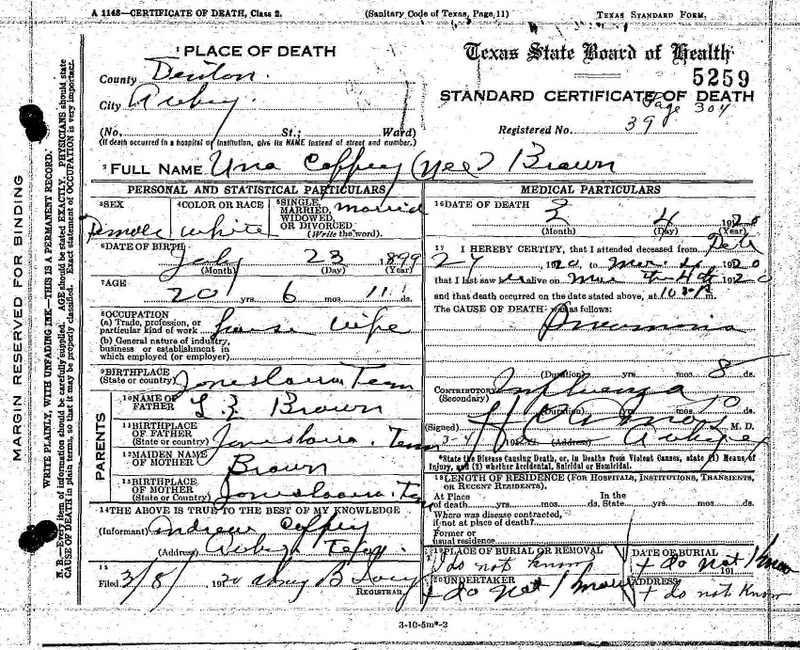 A 1145—CERTIFICATE OF DEATH, Class 2. (Sanitary Code of Texas, Page 11) TEXAS STANDARD FORM.
MARGIN RESERVED FOR BINDING
WRITE PLAINLY, WITH UNFADING INK—THIS IS A PERMANENT RECORD.
N. B.—Every item of information should be carefully supplied. AGE should be stated EXACTLY. PHYSICIANS should state
CAUSE OF DEATH in plain terms, so that it may be properly classified. Exact statement of OCCUPATION is very important.
1 PLACE OF DEATH
County Denton.
City Aubrey.
(No. St.; Ward)
(If death occurred in a hospital or institution, give its NAME instead of street and number.)
Texas State Board of Health
5259
STANDARD CERTIFICATE OF DEATH
Page 304
Registered No. 39
2 FULL NAME Una Coffey (nee) Brown
PERSONAL AND STATISTICAL PARTICULARS
3 SEX
Female
4 COLOR OR RACE
White
5 SINGLE, MARRIED, WIDOWED, OR DIVORCED (Write the word). married
6 DATE OF BIRTH
July 23 1899
(Month) (Day) (Year)
7 AGE
20 yrs. 6 mos. 11 ds.
8 OCCUPATION
(a) Trade, profession, or
particular kind of work house wife
(b) General nature of industry,
business or establishment in
which employed (or employer)
9 BIRTHPLACE
(State or country) Jonesboro Tenn
PARENTS
10 NAME OF
FATHER L. Z Brown
11 BIRTHPLACE
OF FATHER
(State or country) Jonesboro. Tenn
12 MAIDEN NAME
OF MOTHER Brown
13 BIRTHPLACE
OF MOTHER
(State or Country) Jonesboro. Tenn
14 THE ABOVE IS TRUE TO THE BEST OF MY KNOWLEDGE
(Informant) Andrew Coffey
(Address) Aubrey Texas.
15
Filed 3/8/ 1920
REGISTRAR
MEDICAL PARTICULARS
16 DATE OF DEATH
4 1920
(Month) (Day) (Year)
17 I HEREBY CERTIFY, that I attended deceased from
27 1920, to Mar. 1920
that I last saw alive on Mar the 4th 1920
and that death occurred on the date stated above, at m.
The CAUSE OF DEATH was as follows:
Pneumonia
(Duration) yrs. mos. 8 ds.
CONTRIBUTORY Influenza
(Secondary)
(Duration) yrs. mos. 10 ds.
(Signed) M. D.
3-4 192 (Address) Aubrey
*State the Disease Causing Death, or, in Deaths from Violent Causes, state (1) Means of
Injury, and (2) whether Accidental, Suicidal or Homicidal.
18 LENGTH OF RESIDENCE (FOR HOSPITALS, INSTITUTIONS, TRANSIENTS,
OR RECENT RESIDENTS).
At Place In the
of death yrs. mos. ds. State yrs. mos. ds.
Where was disease contracted,
if not at place of death?
Former or
usual residence
19 PLACE OF BURIAL OR REMOVAL
I do not know
DATE OF BURIAL
I do not know 191
20 UNDERTAKER
I do not know
ADDRESS
I do not know
3-10-5m*-2